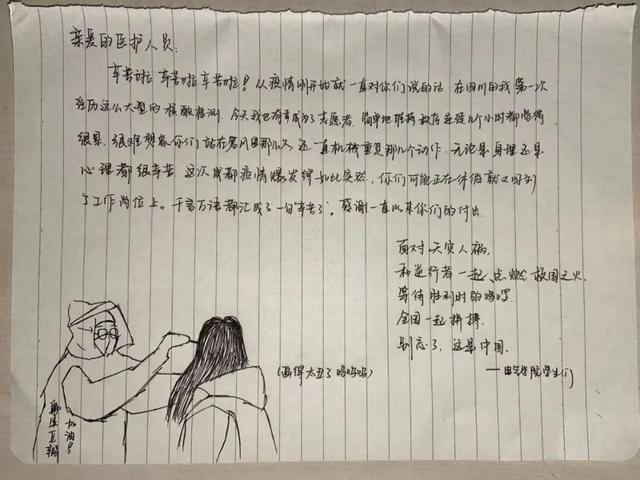 亲爱的医护人员:
辛苦啦 辛苦啦 辛苦啦! 从疫情刚开始就一直对你们说的话. 在四川的我第一次
经历这么大型的核酸检测. 今天我也有幸成为了志愿者. 简单地维持秩序连续几个小时都觉得
很累. 很难想象你们站在寒风里那么久 还一直机械重复那几个动作. 无论是身理还是
心理都很辛苦. 这次成都疫情爆发得如此突然, 你们可能正在休假就又回到
了工作岗位上。千言万语都汇成了一句"辛苦了", 感谢一直以来你们的付出.
面对天灾人祸,
和逆行者一起, 点燃报国之火,
等待胜利时的呜呜.
全国一起拼搏,
别忘了, 这是中国.
学院学生们
(画得太丑了呜呜呜)
加油